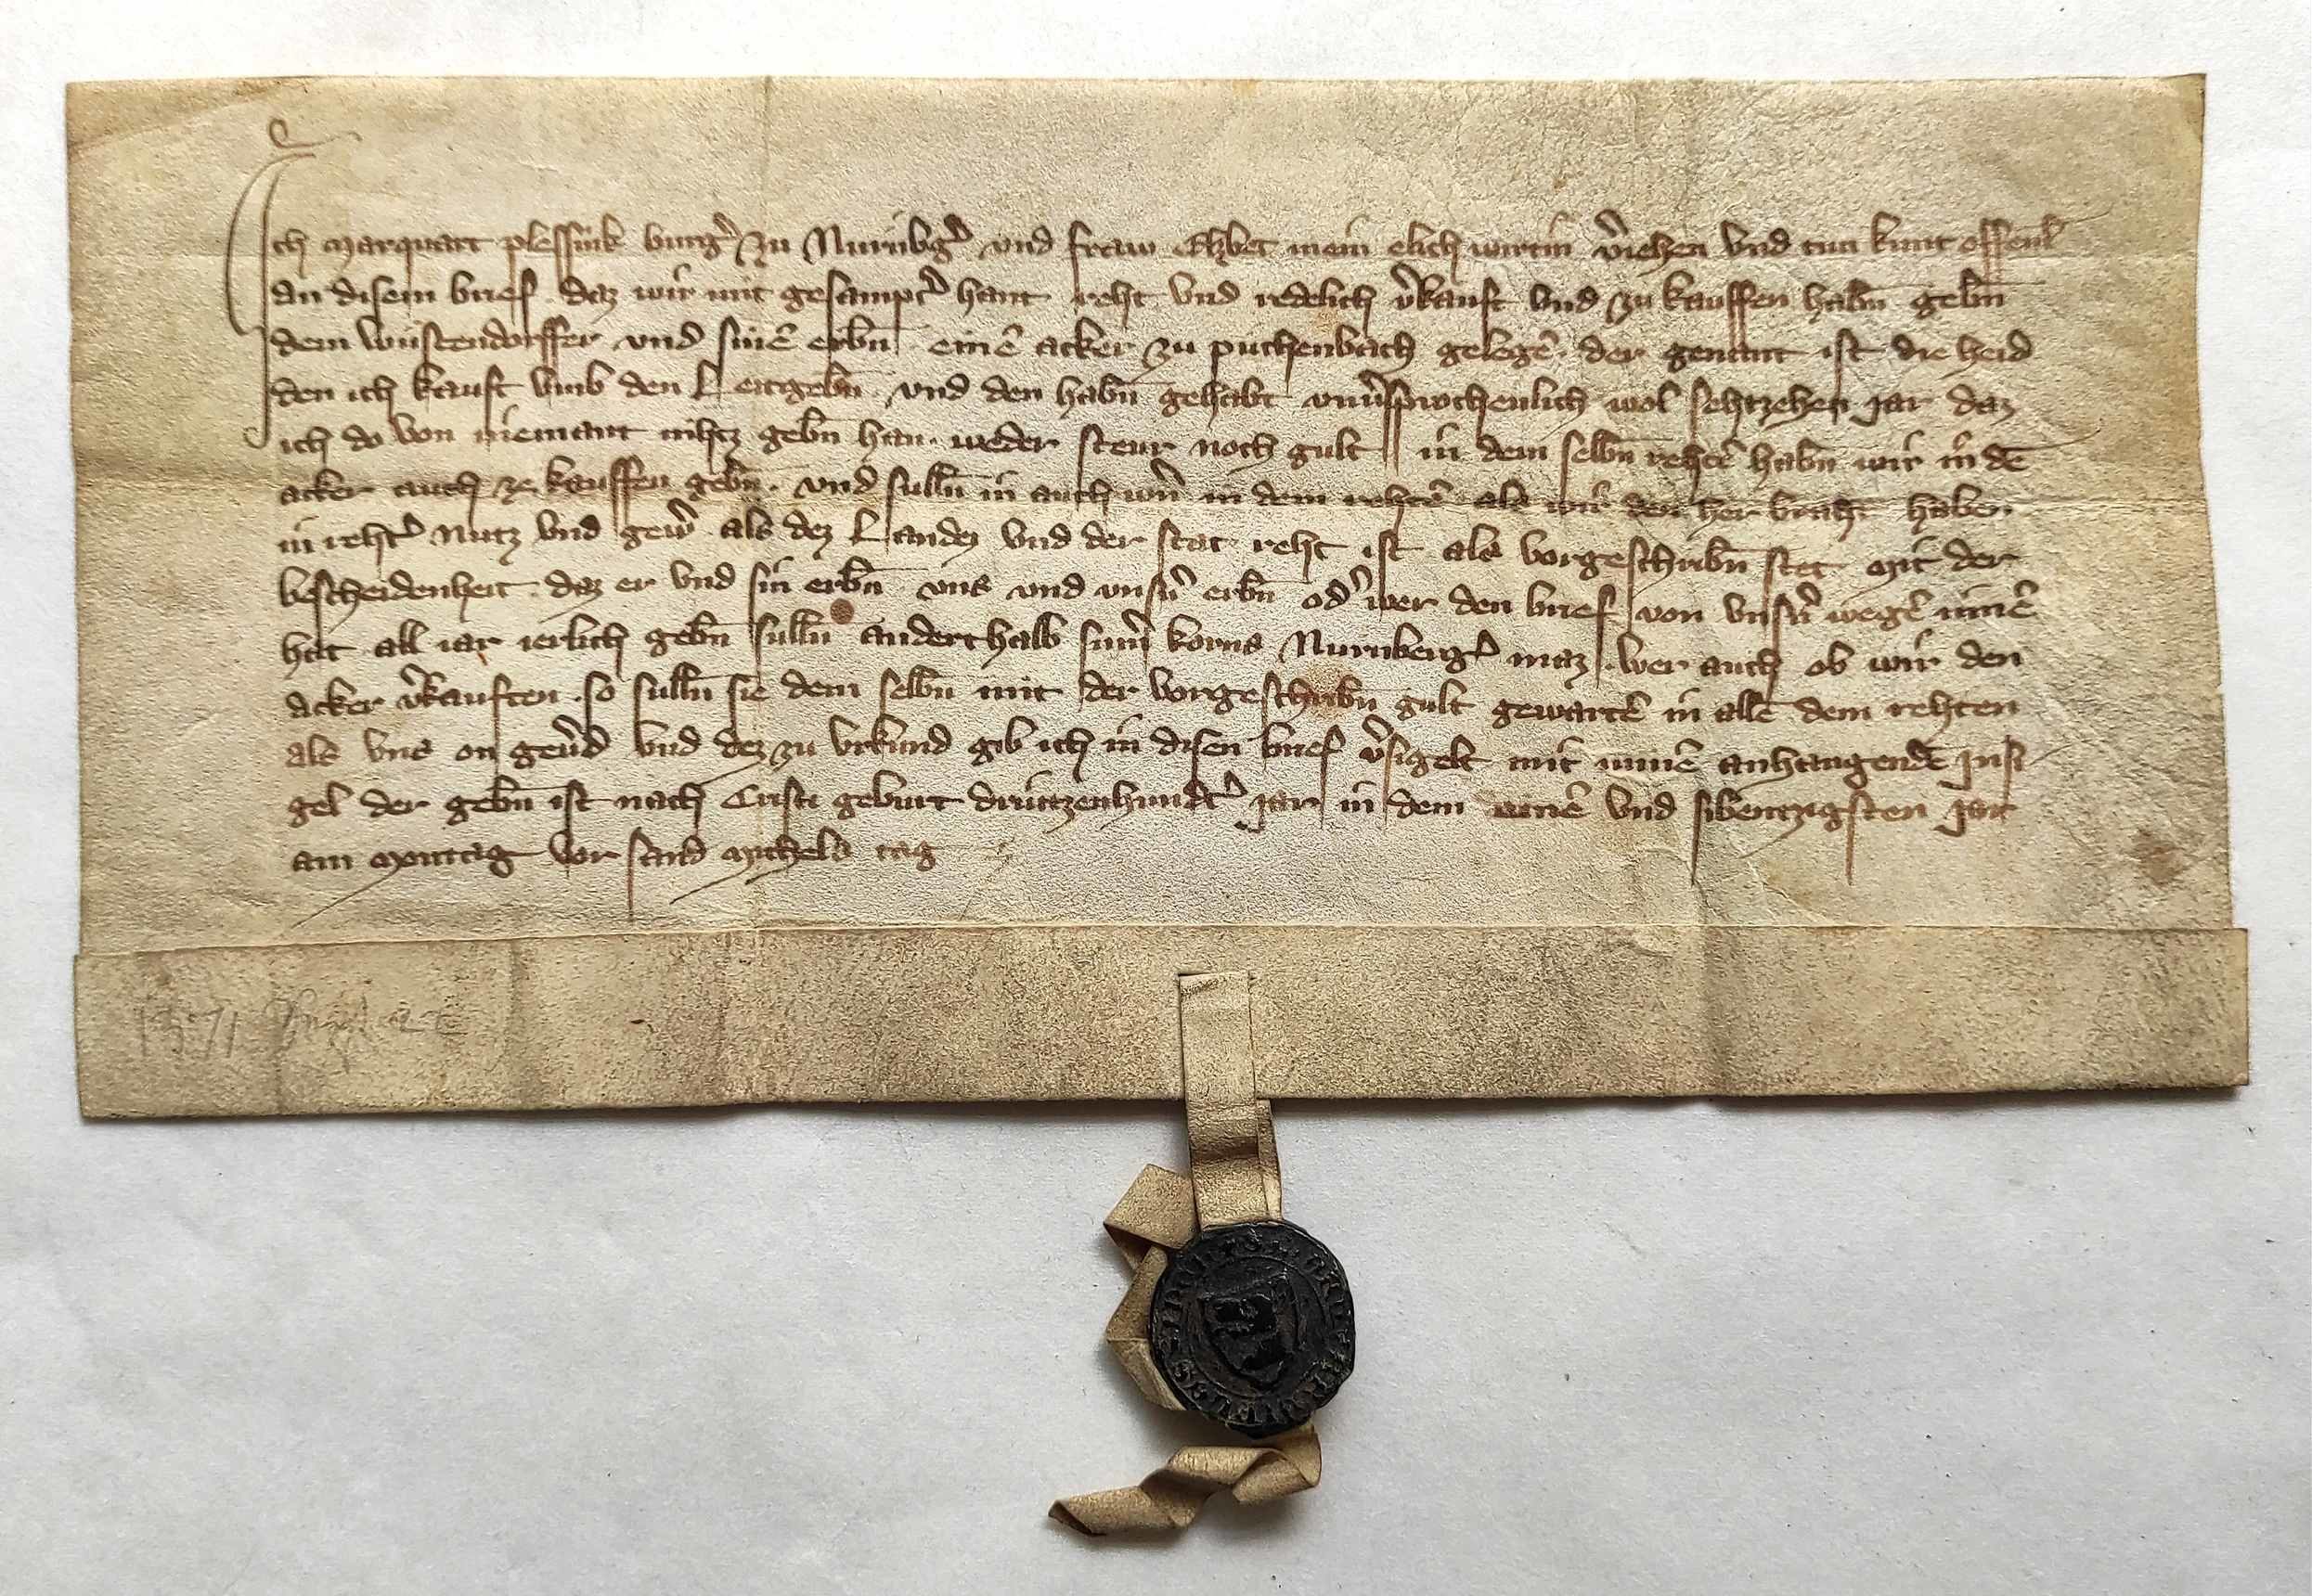 Ich Marquart plessink burg̉ zu Nurnbg̉ und fraw Elzbet mein elich wirtin v̉iehen und tun kunt offenl̄
an disem brief daz wir mit gesampt̉ hant reht und redelich v̉kauft und zu kauffen habn̄ gebn̄
dem wustendorffer und sinē erbn̄ einē acker zu puchenbach gelegē der genant ist die heid
den ich kauft umb den Leitgebn̄ und den habn̄ gehabt unv̉sprochenlich wol sehtzehen jar daz
ich do von niemant nihtz gebn̄ han weder steur noch gult in dem selbn̄ rehtē habn̄ wir in dē
acker auch ze kauffen gebn̄ und sulln̄ in auch wern̉ in dem rehtē als wir den her braht haben
in reht̉ nutz und gew̉ als dez Landez und der stat reht ist als vorgeschribn̄ stet mit der
bescheidenheit daz er und sin erbn̄ uns und unsn̉ erbn̄ od̉ wer den brief von unsn̉ wegē innē
hat all iar ierlich gebn̄ sulln̄ anderthalb sum̉ korns Nurnberg̉ maz wer auch ob wir den
acker v̉kauften so sulln̄ sie dem selbn̄ mit der vorgeschribn̄ gult gewartē in allē dem rehten
als uns on gev̉d und dez zu urkund gib ich in disen brief v̉sigelt mit minē anhangendē Insi
gel der gebn̄ ist nach Cristi geburt drutzenhundt̉ jar in dem einē und sibentzigsten Jar
am montag vor sand michels tag
1371